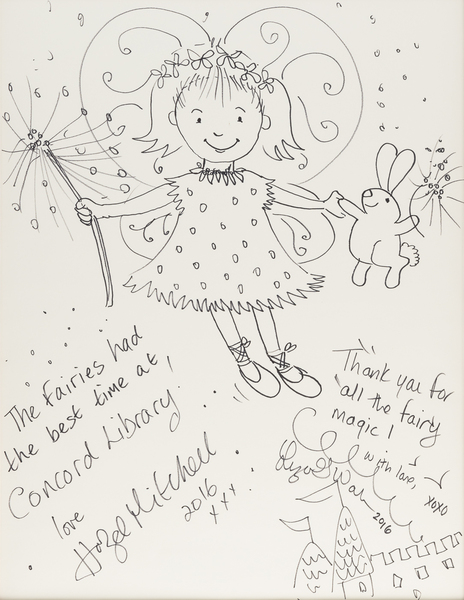 The Fairies had
the best time at,
Concord Library.
love
Hazel Mitchell
2016
xxx
"Thank you for
all the fairy
magic!
with love,
xoxo
2016